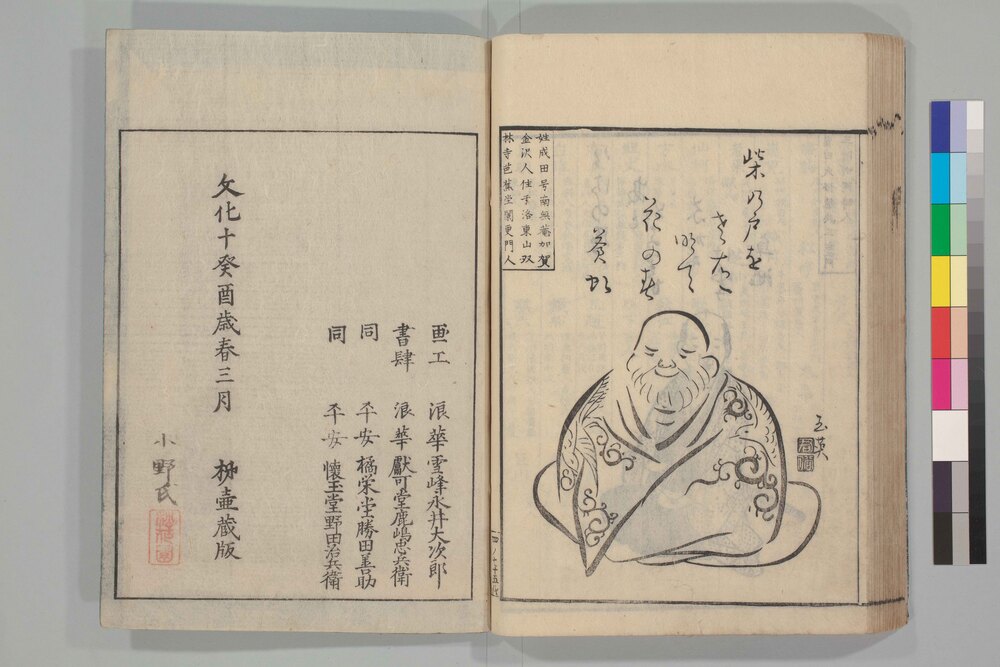 柴の戸を
明て
花の春
蒼虬
玉英
姓成田号南無菴加賀
金沢人住于洛東山双
林寺芭蕉堂闌更門人
画工 浪華 雪峰永井大次郎
書肆 浪華 獻可堂鹿嶋忠兵衛
同 平安 橘栄堂勝田善助
同 平安 懐玉堂野田治兵衛
文化十癸酉歳春三月 壷蔵版
小野氏